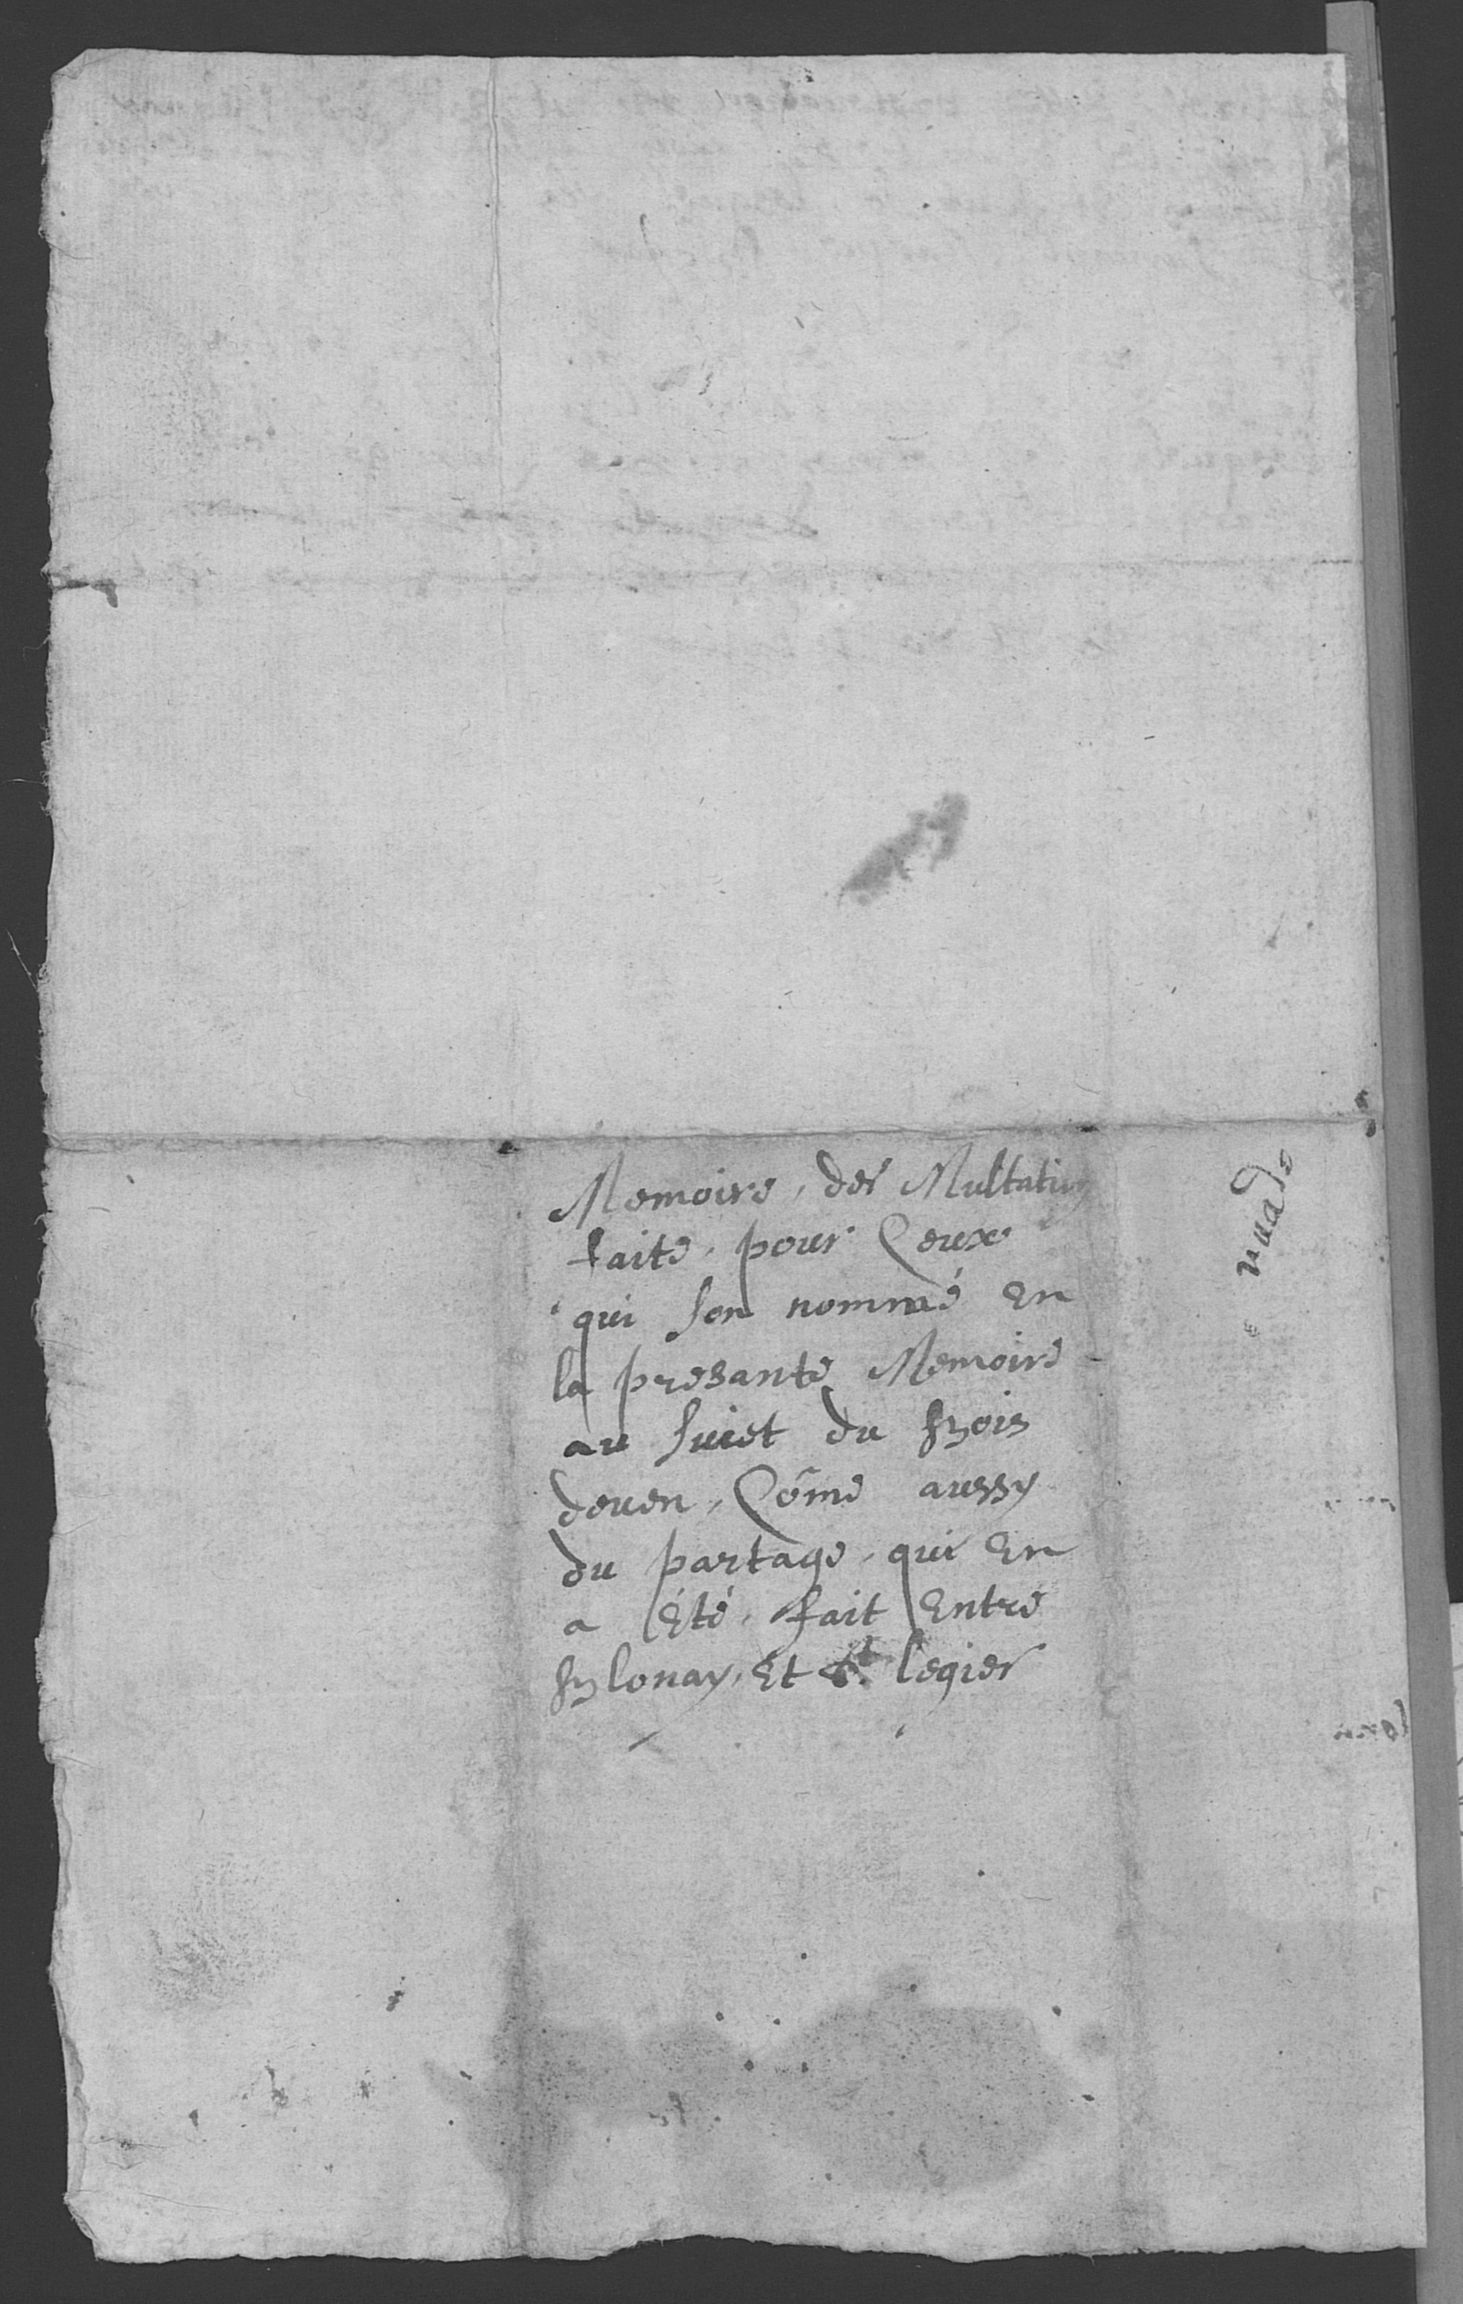 Memoire, des Multation
faite, pour Ceux
qui son nommé En
la presante Memoire
au suiet du Bois
deuen, Cõme aussy
du partage, qui En
a Été, fait Entre
Blonay, Et St. legier